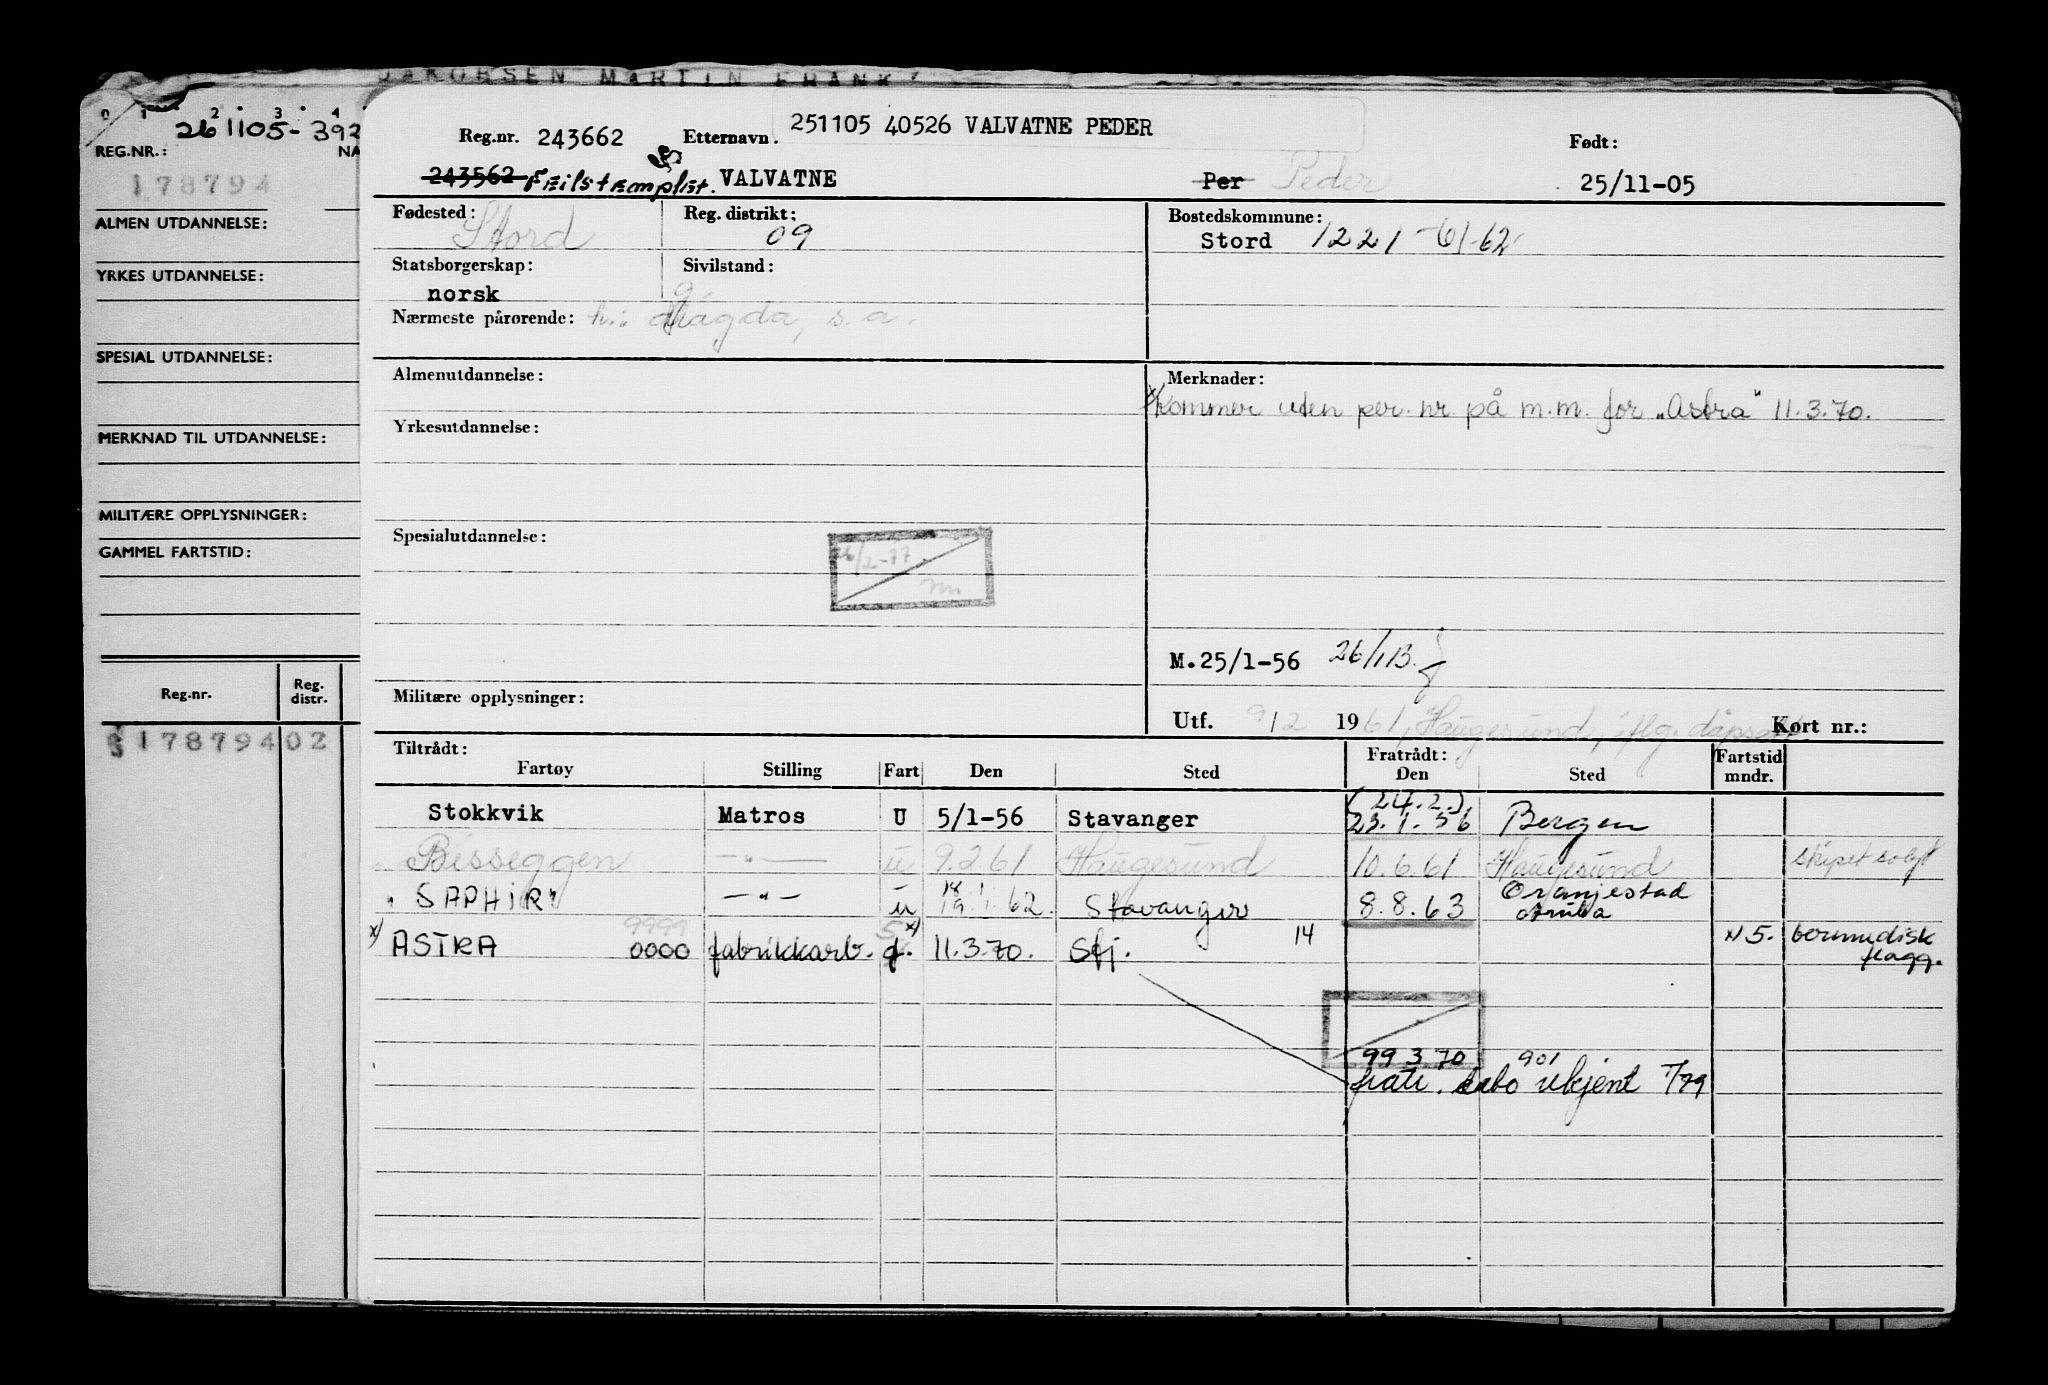 JAKOBSEN MARTIN FRANK
0 1 2 3 4
261105-392
REG.NR.: NA
178794
ALMEN UTDANNELSE:
YRKES UTDANNELSE:
SPESIAL UTDANNELSE:
MERKNAD TIL UTDANNELSE:
MILITÆRE OPPLYSNINGER:
GAMMEL FARTSTID:
Reg.nr. Reg. distr.
178794 02
Reg.nr. 243662 Etternavn. 251105 40526 VALVATNE PEDER Født:
243562 Feilstemplet. VALVATNE Per Peder 25/11-05
Fødested: Stord Reg. distrikt: 09 Bostedskommune: Stord 1221 -61-62
Statsborgerskap: norsk Sivilstand: g
Nærmeste pårørende: h.: Magda, s.a.
Almenutdannelse: Merknader:
x) Kommer uten per. nr. på m.m. for "Astra" 11.3.70.
Yrkesutdannelse:
Spesialutdannelse: 26/2-77
M.25/1-56 26/1 B.
Militære opplysninger:
Utf. 9/2 1961, Haugesund, iflg. dåpsatt Kort nr.:
Tiltrådt: Fratrådt: Fartstid mndr.
Fartøy Stilling Fart Den Sted Den Sted
Stokkvik Matros U 5/1-56 Stavanger (24.2.) 23.1.56 Bergen
" Besseggen -"- u 9.2.61 Haugesund 10.6.61 Haugesund skipet solgt
" SAPHIR" -"- u 18.1. 19.1.62. Stavanger 8.8.63 Oranjestad Aruba
x) ASTRA 9999 0000 fabrikkarb. f. x) 11.3.70. Sfj. 14 x) 5. bermudisk flagg.
99 3.70 901
fratr. dato ukjent 7/79